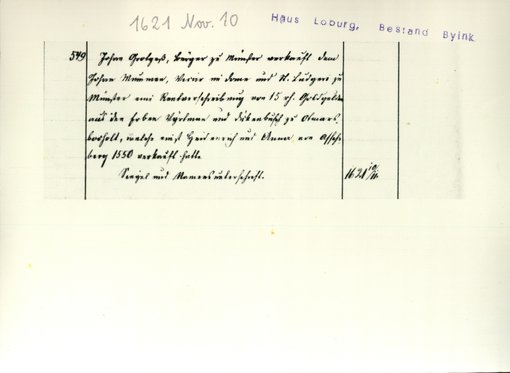 1621 Nov. 10
Haus Loburg, Bestand Byink
549 Johan Grolgeß, Bürger zu Münster verkauft dem
Johan Münnen, Vicar im dome und St. Ludgeri zu
Münster eine Rentverschreibung von 15 rh. Goldgulden
aus den Erben und zu Otmars
bocholt, welche einst Heidenreich und Anna von Asche
berg 1550 verkauft hatte
Siegel und Namensunterschrift.
1621 10/11.